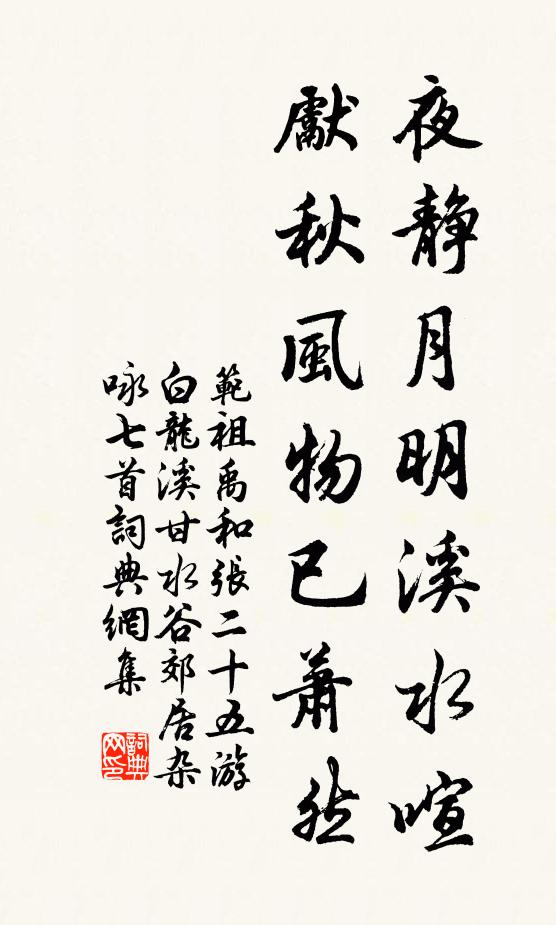 夜靜月明溪水喧
獻秋風物已蕭然
範祖禹和張二十五游
白龍溪甘水谷郊居杂
咏七首詞典網集
詞典网印